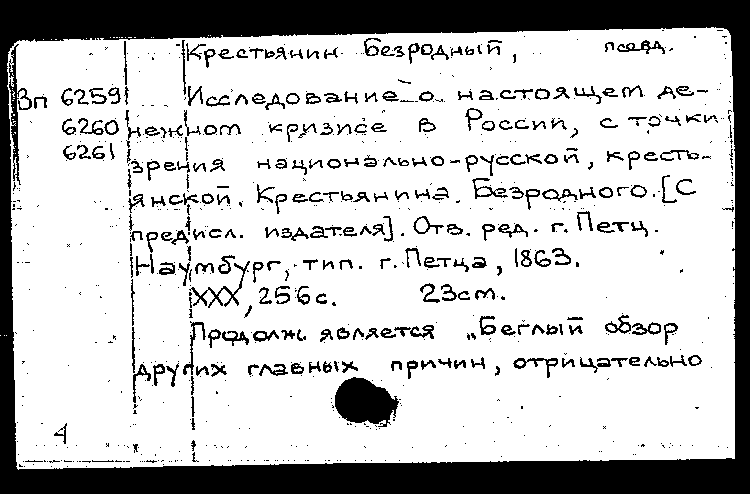 Крестьянин Безродный, псевд.
Вп 6259 Исследование о настоящем де-
6260 нежном кризисе в России, с точки
6261 зрения национально-русской, кресть-
янской. Крестьянина Безродного. [С
предисл. издателя]. Отв. ред. г. Петц.
Наумбург, тип. г. Петца, 1863.
XXX, 256 с. 23 см.
Продолж. является „Беглый обзор
других главных причин, отрицательно
4